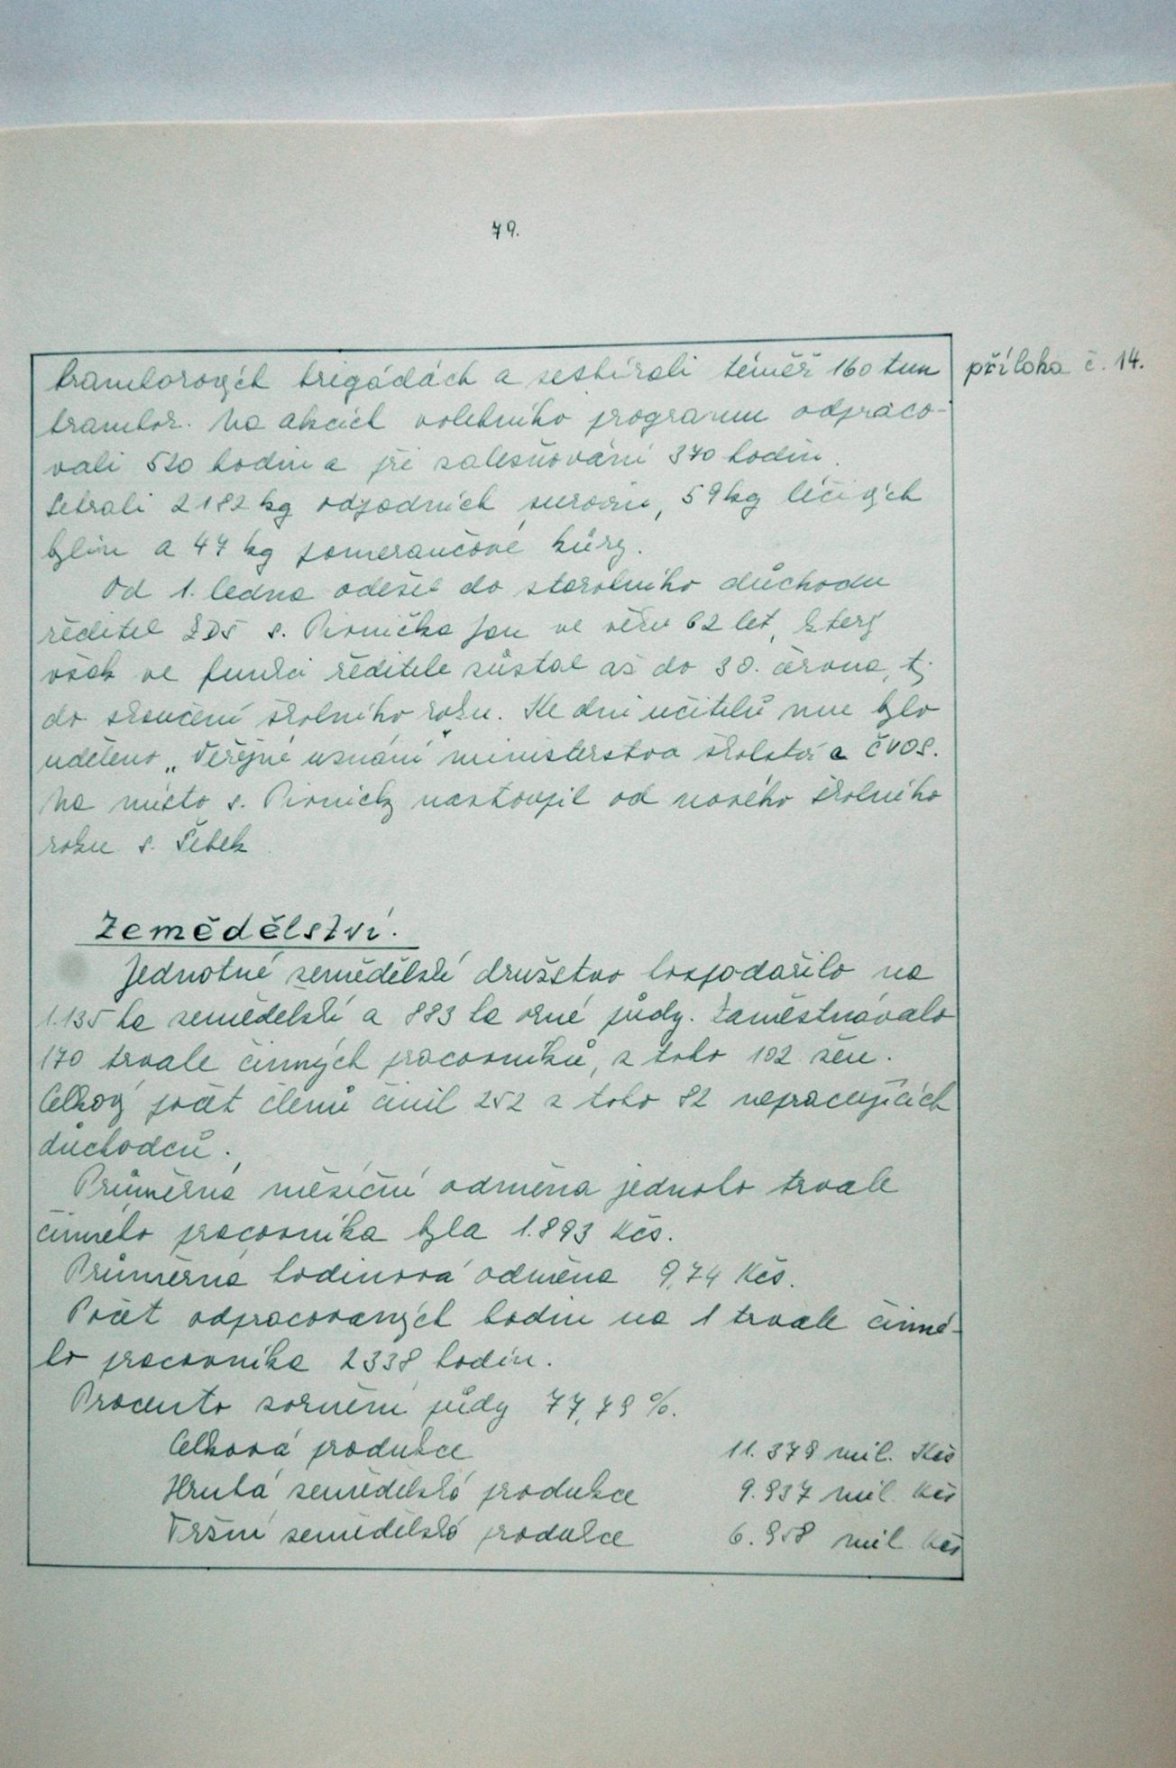 79.
příloha č. 14.
bramborových brigádách a sesbírali téměř 160 tun
brambor. Na akcích volebního programu odpraco-
vali 520 hodin a při zalesňování 370 hodin.
Sebrali 2182 kg odpadních surovin, 59 kg léčivých
bylin a 47 kg pomerančové kůry.
Od 1. ledna odešel do starobního důchodu
ředitel ZDŠ s. Pivnička Jan ve věku 62 let, který
však ve funkci ředitele zůstal až do 30. června, tj.
do skončení školního roku. Ke dni učitelů mu bylo
uděleno „Veřejné uznání" ministerstva školství a ČVOS.
Na místo s. Pivničky nastoupil od nového školního
roku s. Šebek.
Zemědělství.
Jednotné zemědělské družstvo hospodařilo na
1.135 ha zemědělské a 883 ha orné půdy. Zaměstnávalo
170 trvale činných pracovníků, z toho 102 žen.
Celkový počet členů činil 252 z toho 82 nepracujících
důchodců.
Průměrná měsíční odměna jednoho trvale
činného pracovníka byla 1.893 Kčs.
Průměrná hodinová odměna 9,74 Kčs.
Počet odpracovaných hodin na 1 trvale činné-
ho pracovníka 2338 hodin.
Procento zornění půdy 77,79 %.
Celková produkce 11.379 mil. Kčs
Hrubá zemědělská produkce 9.937 mil. Kčs
Tržní zemědělská produkce 6.958 mil. Kčs